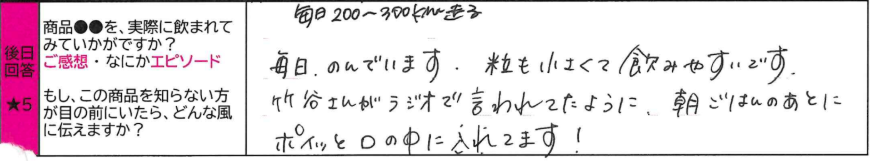 毎日200〜300km走る
後日
回答
★5
商品●●を、実際に飲まれて
みていかがですか？
ご感想・なにかエピソード
もし、この商品を知らない方
が目の前にいたら、どんな風
に伝えますか？
毎日、のんでいます。粒も小さくて飲みやすいです。
竹谷さんがラジオで言われてたように、朝ごはんのあとに
ポイッと口の中に入れてます！